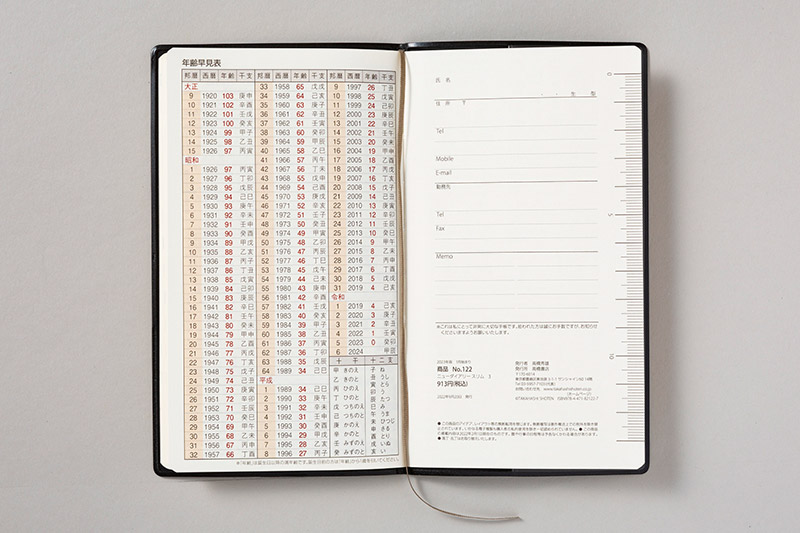 年齢早見表
邦暦 西暦 年齢 干支
大正
9 1920 103 庚申
10 1921 102 辛酉
11 1922 101 壬戌
12 1923 100 癸亥
13 1924 99 甲子
14 1925 98 乙丑
15 1926 97 丙寅
昭和
1 1926 97 丙寅
2 1927 96 丁卯
3 1928 95 戊辰
4 1929 94 己巳
5 1930 93 庚午
6 1931 92 辛未
7 1932 91 壬申
8 1933 90 癸酉
9 1934 89 甲戌
10 1935 88 乙亥
11 1936 87 丙子
12 1937 86 丁丑
13 1938 85 戊寅
14 1939 84 己卯
15 1940 83 庚辰
16 1941 82 辛巳
17 1942 81 壬午
18 1943 80 癸未
19 1944 79 甲申
20 1945 78 乙酉
21 1946 77 丙戌
22 1947 76 丁亥
23 1948 75 戊子
24 1949 74 己丑
25 1950 73 庚寅
26 1951 72 辛卯
27 1952 71 壬辰
28 1953 70 癸巳
29 1954 69 甲午
30 1955 68 乙未
31 1956 67 丙申
32 1957 66 丁酉
邦暦 西暦 年齢 干支
33 1958 65 戊戌
34 1959 64 己亥
35 1960 63 庚子
36 1961 62 辛丑
37 1962 61 壬寅
38 1963 60 癸卯
39 1964 59 甲辰
40 1965 58 乙巳
41 1966 57 丙午
42 1967 56 丁未
43 1968 55 戊申
44 1969 54 己酉
45 1970 53 庚戌
46 1971 52 辛亥
47 1972 51 壬子
48 1973 50 癸丑
49 1974 49 甲寅
50 1975 48 乙卯
51 1976 47 丙辰
52 1977 46 丁巳
53 1978 45 戊午
54 1979 44 己未
55 1980 43 庚申
56 1981 42 辛酉
57 1982 41 壬戌
58 1983 40 癸亥
59 1984 39 甲子
60 1985 38 乙丑
61 1986 37 丙寅
62 1987 36 丁卯
63 1988 35 戊辰
64 1989 34 己巳
平成
1 1989 34 己巳
2 1990 33 庚午
3 1991 32 辛未
4 1992 31 壬申
5 1993 30 癸酉
6 1994 29 甲戌
7 1995 28 乙亥
8 1996 27 丙子
邦暦 西暦 年齢 干支
9 1997 26 丁丑
10 1998 25 戊寅
11 1999 24 己卯
12 2000 23 庚辰
13 2001 22 辛巳
14 2002 21 壬午
15 2003 20 癸未
16 2004 19 甲申
17 2005 18 乙酉
18 2006 17 丙戌
19 2007 16 丁亥
20 2008 15 戊子
21 2009 14 己丑
22 2010 13 庚寅
23 2011 12 辛卯
24 2012 11 壬辰
25 2013 10 癸巳
26 2014 9 甲午
27 2015 8 乙未
28 2016 7 丙申
29 2017 6 丁酉
30 2018 5 戊戌
31 2019 4 己亥
令和
1 2019 4 己亥
2 2020 3 庚子
3 2021 2 辛丑
4 2022 1 壬寅
5 2023 0 癸卯
6 2024
十干 十二支
甲 きのえ 子 ね
乙 きのと 丑 うし
丙 ひのえ 寅 とら
丁 ひのと 卯 う
戊 つちのえ 辰 たつ
己 つちのと 巳 み
庚 かのえ 午 うま
辛 かのと 未 ひつじ
壬 みずのえ 申 さる
癸 みずのと 酉 とり
戌 いぬ
亥 い
氏名
生 型
住所 〒
Tel
Mobile
E-mail
勤務先
Tel
Fax
Memo
※これは私にとって非常に大切な手帳です。拾われた方は誠にお手数ですが、お知らせ
くださいますようお願いいたします。
0
5
10
2023年版 1月始まり
商品 No.122
ニューダイアリー スリム 1
913円(税込)
発行者 高橋秀雄
発行所 高橋書店
〒170-6014